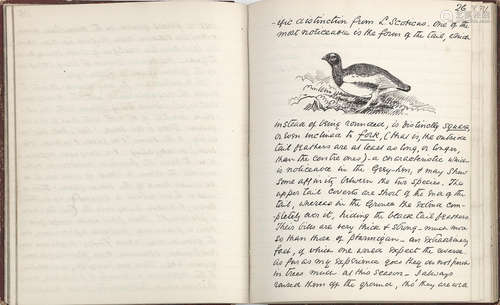 26
-ific distinction from L. Scoticus. One of the
most noticeable is the form of the tail, which
instead of being rounded, is distinctly square
or even inclined to fork, (that is, the outside
tail feathers are at least as long, or longer,
than the centre ones) - a characteristic which
is noticeable in the Grey-hen, & may show
some affinity between the two species. The
upper tail coverts are short of the end of the
tail, whereas in the Grouse the extend com-
pletely over it, hiding the black tail feathers
Their bills are very thick & strong - much more
so than those of ptarmigan - an extraordinary
fact, if which one would expect the reverse,
as far as my experience goes they do not perch
in trees much at this season - I always
raised them off the ground, tho' they are over